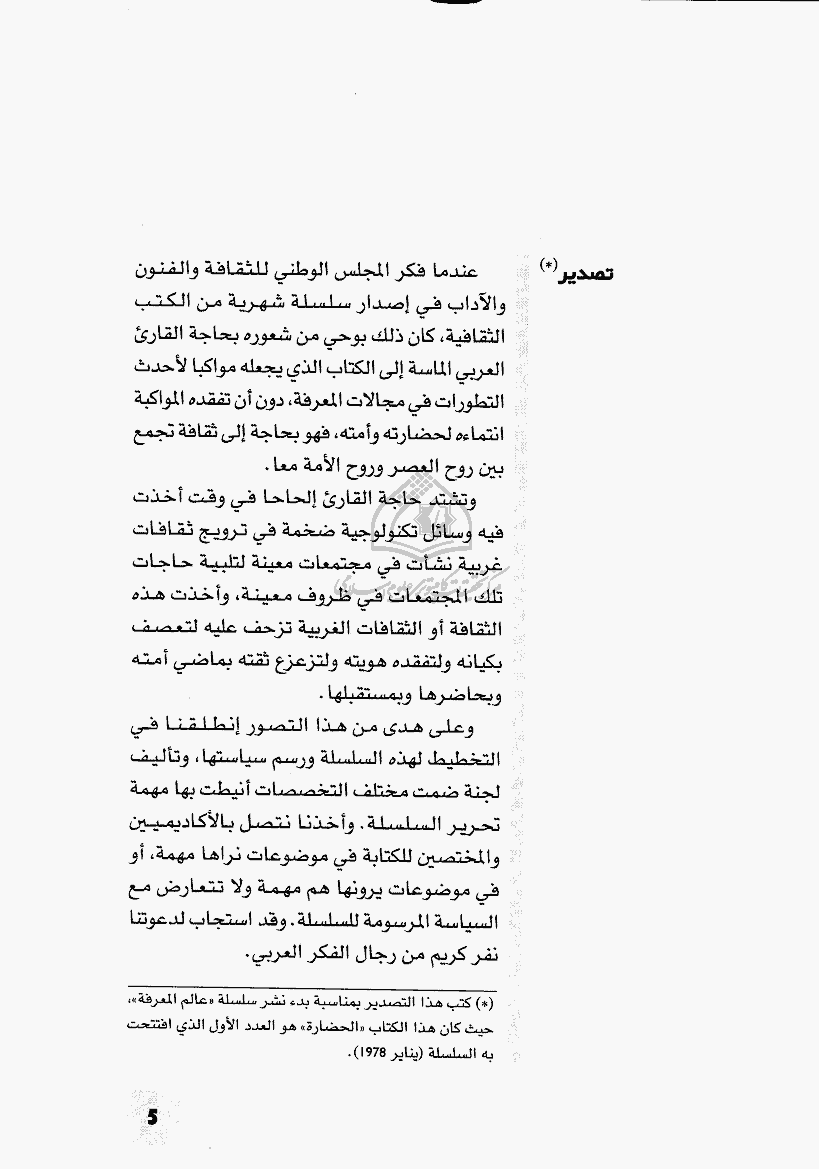 تصدير(*)
عندما فكر المجلس الوطني للثقافة والفنون
والآداب في إصدار سلسلة شهرية من الكتب
الثقافية، كان ذلك بوحي من شعوره بحاجة القارئ
العربي الماسة إلى الكتاب الذي يجعله مواكبا لأحدث
التطورات في مجالات المعرفة، دون أن تفقده المواكبة
انتماءه لحضارته وأمته، فهو بحاجة إلى ثقافة تجمع
بين روح العصر وروح الأمة معا.
وتشتد حاجة القارئ إلحاحا في وقت أخذت
فيه وسائل تكنولوجية ضخمة في ترويج ثقافات
غربية نشأت في مجتمعات معينة لتلبية حاجات
تلك المجتمعات في ظروف معينة، وأخذت هذه
الثقافة أو الثقافات الغربية تزحف عليه لتعصف
بكيانه ولتفقده هويته ولتزعزع ثقته بماضي أمته
وبحاضرها وبمستقبلها.
وعلى هدى من هذا التصور إنطلقنا في
التخطيط لهذه السلسلة ورسم سياستها، وتأليف
لجنة ضمت مختلف التخصصات أنيطت بها مهمة
تحرير السلسلة. وأخذنا نتصل بالأكاديميين
والمختصين للكتابة في موضوعات نراها مهمة، أو
في موضوعات يرونها هم مهمة ولا تتعارض مع
السياسة المرسومة للسلسلة. وقد استجاب لدعوتنا
نفر كريم من رجال الفكر العربي.
(*) كتب هذا التصدير بمناسبة بدء نشر سلسلة «عالم المعرفة»،
حيث كان هذا الكتاب «الحضارة» هو العدد الأول الذي افتتحت
به السلسلة (يناير 1978).
5